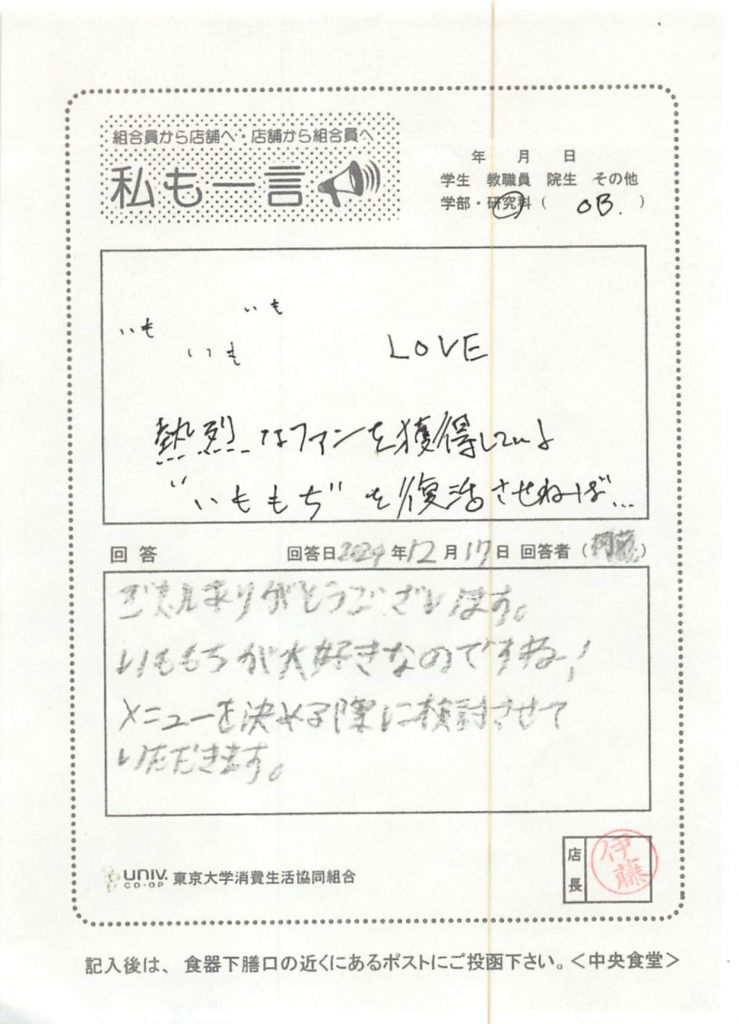 組合員から店舗へ・店舗から組合員へ
私も一言
年 月 日
学生 教職員 院生 その他
学部・研究科( OB. )
いも
いも
いも
LOVE
熱烈なファンを獲得している
"いももち"を復活させねば...
回答 回答日2024年12月17日 回答者( )
ご意見ありがとうございます。
いももちが大好きなのですね!
メニューを決める際に検討させて
いただきます。
UNIV.
CO-OP
東京大学消費生活協同組合
店長
伊藤
記入後は、食器下膳口の近くにあるポストにご投函下さい。<中央食堂>